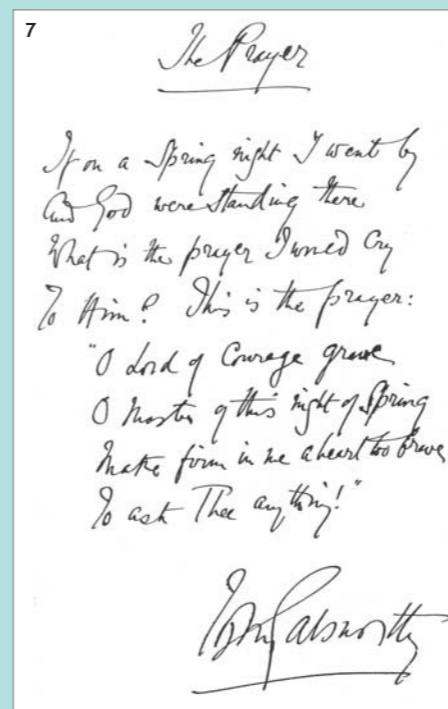 7
The Prayer
If on a Spring night I went by
And God were standing there
What is the prayer I would cry
To Him? This is the prayer:
"O Lord of Courage grave
O Master of this night of Spring
Make firm in me a heart too brave
To ask Thee anything!"
John Galsworthy